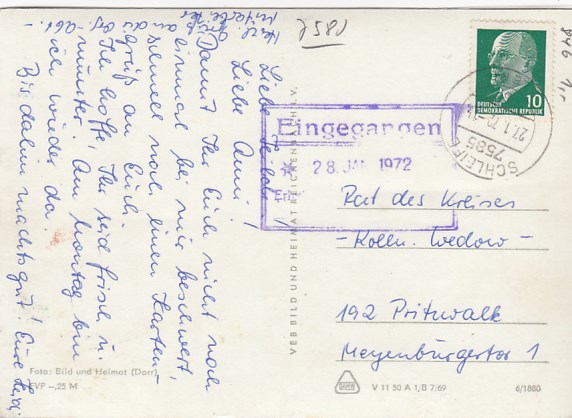 Liebe Heidi!
Liebe Anni!
Damit Ihr Euch nicht noch
einmal bei mir beschwert,
schnell noch einen Karten-
gruß an Euch.
Ich hoffe, Ihr seid frisch u.
munter. Am Montag bin
ich wieder da.
Bis dahin macht's gut! Eure
Herzl.
Mitarbeiter
1852
DEUTSCHE
DEMOKRATISCHE REPUBLIK
10
SCHLEIFE
7585
27.1.72
Eingegangen
* 28. JAN. 1972
Erl.
Rat des Kreises
- Kolln. Wedow -
192 Pritzwalk
Meyenburgertor 1
VEB BILD UND HEIMAT REICHENBACH I. V.
Foto: Bild und Heimat (Dorr)
EVP -,25 M
V 11 50 A 1, B 7/69
6/1880